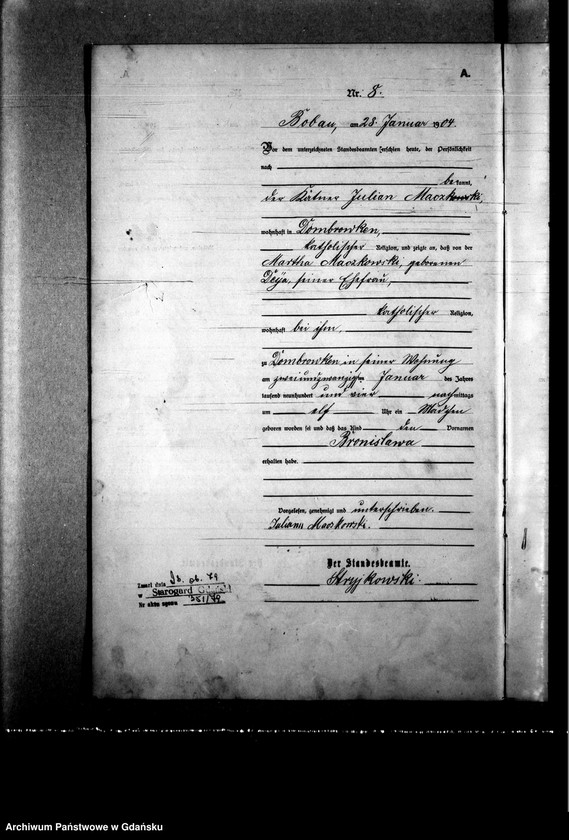 A.
Nr. 8.
Bobau, am 28. Januar 1904.
Vor dem unterzeichneten Standesbeamten erschien heute, der Persönlichkeit
nach
bekannt,
der Kätner Julian Maczkowski,
wohnhaft in Dombrowken,
katholischer Religion, und zeigte an, daß von der
Martha Maczkowski, geborenen
Deja, seiner Ehefrau,
katholischer Religion,
wohnhaft bei ihm,
zu Dombrowken in seiner Wohnung
am zweiundzwanzigsten Januar des Jahres
tausend neunhundert und vier nachmittags
um elf Uhr ein Mädchen
geboren worden sei und daß das Kind den Vornamen
Bronislawa
erhalten habe.
Vorgelesen, genehmigt und unterschrieben.
Julian Maczkowski.
Der Standesbeamte.
Stryjkowski.
Zmarł dnia 06. 79
w Starogard
Nr aktu zgonu 251/79
Archiwum Państwowe w Gdańsku